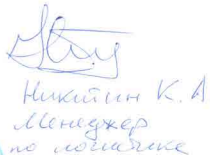 Никитин К. А
Менеджер
по логистике